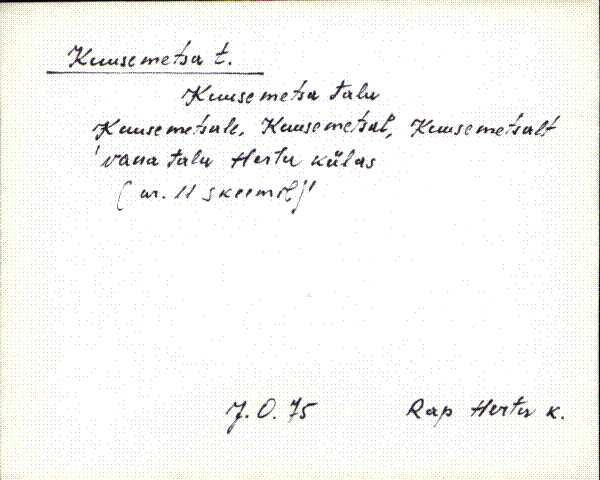 Kuusemetsa t.
Kuusemetsa talu
Kuusemetsale, Kuusemetsal, Kuusemetsalt
'vana talu Hertu külas
(nr. 11 skeemil)'
J. O. 75 Rap Hertu k.